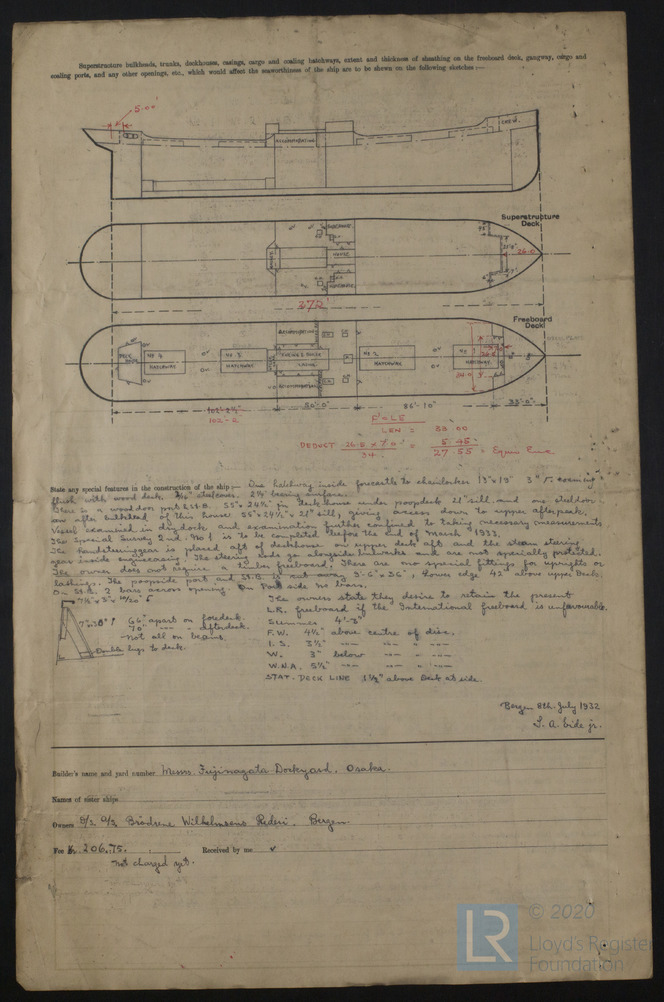 Superstructure bulkheads, trunks, deckhouses, casings, cargo and coaling hatchways, extent and thickness of sheathing on the freeboard deck, gangway, cargo and
coaling ports, and any other openings, etc., which would affect the seaworthiness of the ship are to be shewn on the following sketches :—
5.00'
ACCOMMODATION
CREW.
Superstructure
Deck
HOUSE
26.0
372'
Freeboard
Deck
ACCOMMODATION
Nº 4
HATCHWAY
Nº 3
HATCHWAY
ENGINE & BOILER
CASING
Nº 2
HATCHWAY
HATCHWAY
ACCOMMODATION
102'-2½"
102-2
50'-0"
86'-10"
33'-0"
LEN = 33.00
DEDUCT 26.0 × 7.0 = 5.45
34
27.55 =
State any special features in the construction of the ship :— One hatchway inside forecastle to chainlocker 13" × 19" 3" coaming
flush with wood deck. 2¼" bearing surface.
There is a wood door port & St.B. 55" × 24½" in deck house under poopdeck 21" sill and one steeldoor
on after bulkhead of this house 55" × 24½" × 21" sill, giving access down to upper afterpeak.
Vessel examined in drydock and examination further confined to taking necessary measurements
The Special Survey 2nd. No 1 is to be completed before the end of March 1933.
The handsteeringgear is placed aft of deckhouse on upper deck aft and the steam steering
gear inside enginecasing. The steering rods go alongside bulwarks and are not specially protected.
The owner does not require a timber freeboard. There are no special fittings for uprights or
lashings. The poopside port and St.B. is cut away 3'-6" × 36", lower edge 42" above upper deck.
On St.B. 2 bars across opening. On Port side no bars.
The owners state they desire to retain the present
L.R. freeboard if the International freeboard is unfavourable.
66" apart on foredeck.
70" afterdeck.
Not all on beams.
Double lugs to deck.
Summer 4'-3"
F.W. 4½" above centre of disc.
I.S. 3½" — — " —
W. 3" below — " —
W.N.A. 5½" — — " —
STAT. DECK LINE 1½" above Deck at side.
Bergen 8th. July 1932
Builder's name and yard number Messrs Fujinagata Dockyard, Osaka.
Names of sister ships
Owners Brødrene Wilhelmsens Rederi, Bergen
Fee K. 206.75. Received by me
Not charged yet.
© 2020
LR
Lloyd's Register
Foundation